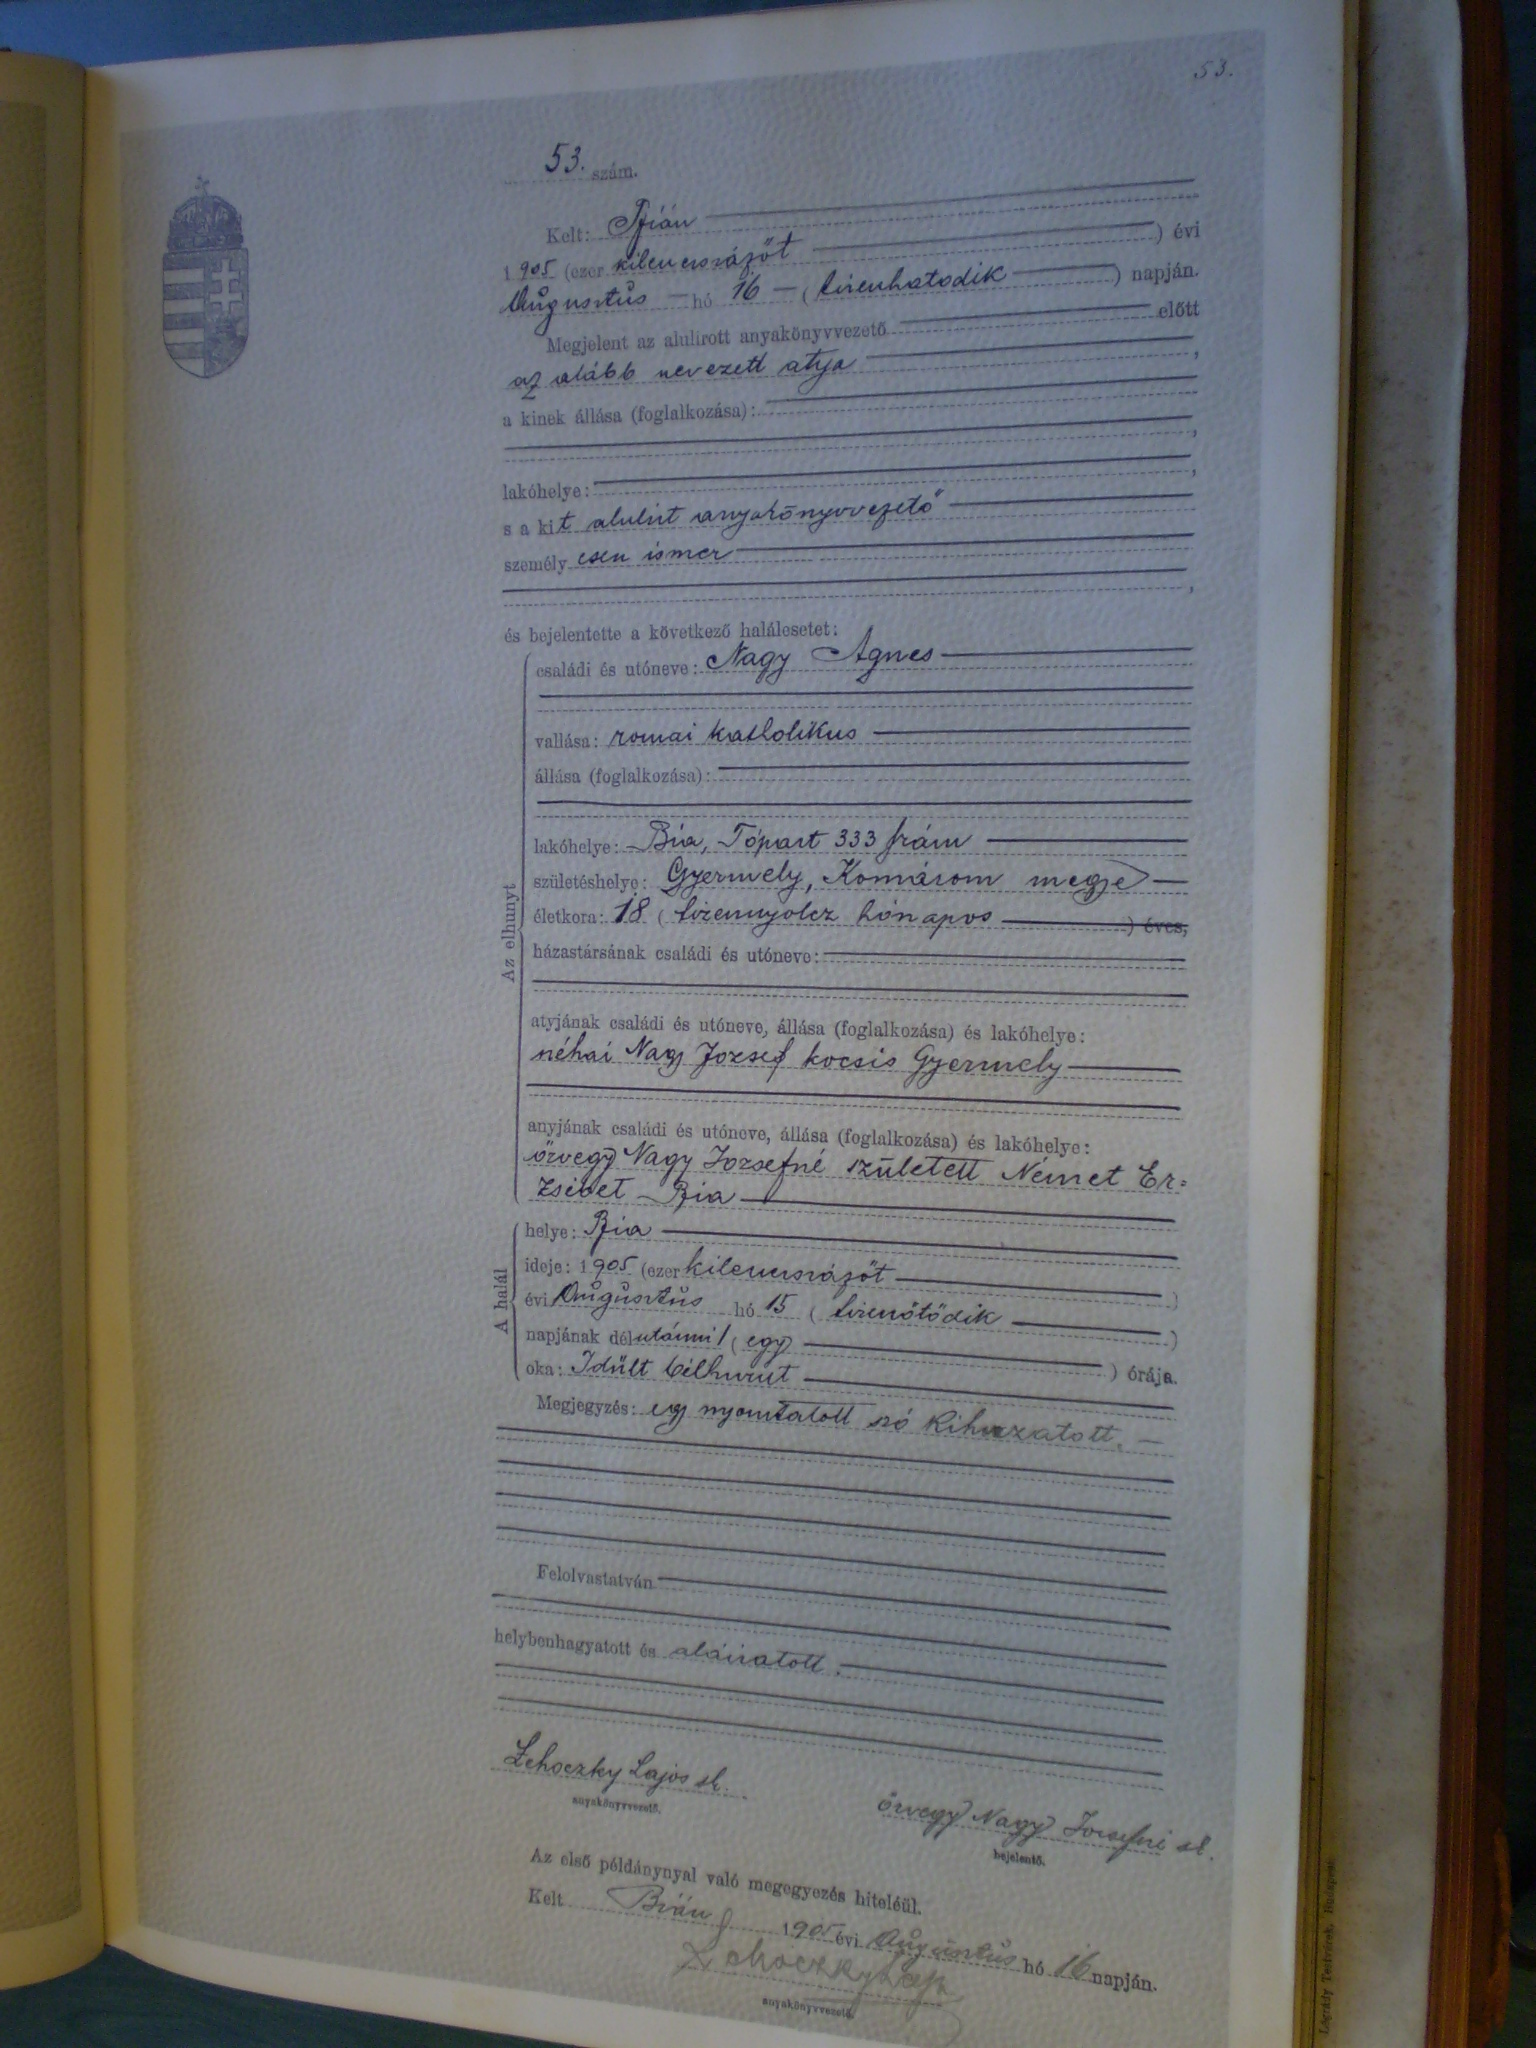 53.
53. szám.
Kelt: Bián
1905 (ezer kilencszázöt ) évi
Augusztus hó 16 (tizenhatodik ) napján.
Megjelent az alulirott anyakönyvvezető előtt
az alább nevezett atyja ,
a kinek állása (foglalkozása):
,
lakóhelye: ,
s a kit alulírt anyakönyvvezető
személyesen ismer
,
és bejelentette a következő halálesetet:
családi és utóneve: Nagy Agnes
vallása: romai katholikus
állása (foglalkozása):
lakóhelye: Bia, Tópart 333 szám
születéshelye: Gyermely, Komárom megye
életkora: 18 (tizennyolcz hónapos ) éves,
házastársának családi és utóneve:
Az elhunyt
atyjának családi és utóneve, állása (foglalkozása) és lakóhelye:
néhai Nagy Jozsef kocsis Gyermely
anyjának családi és utóneve, állása (foglalkozása) és lakóhelye:
özvegy Nagy Jozsefné született Német Er=
zsébet Bia
helye: Bia
ideje: 1905 (ezer kilencszázöt )
évi Augusztus hó 15 (tizenötödik )
A halál
napjának délutánni 1 (egy ) órája.
oka: Idült bélhurut
Megjegyzés: egy nyomtatott szó kihuzatott.
Felolvastatván
helybenhagyatott és aláiratott.
Lehoczky Lajos sk.
anyakönyvvezető.
özvegy Nagy Jozsefné sk.
bejelentő.
Az első példánynyal való megegyezés hiteléül.
Kelt Bián 1905 évi Augusztus hó 16 napján.
Lehoczky Lajos
anyakönyvvezető.
Légrády Testvérek, Budapest